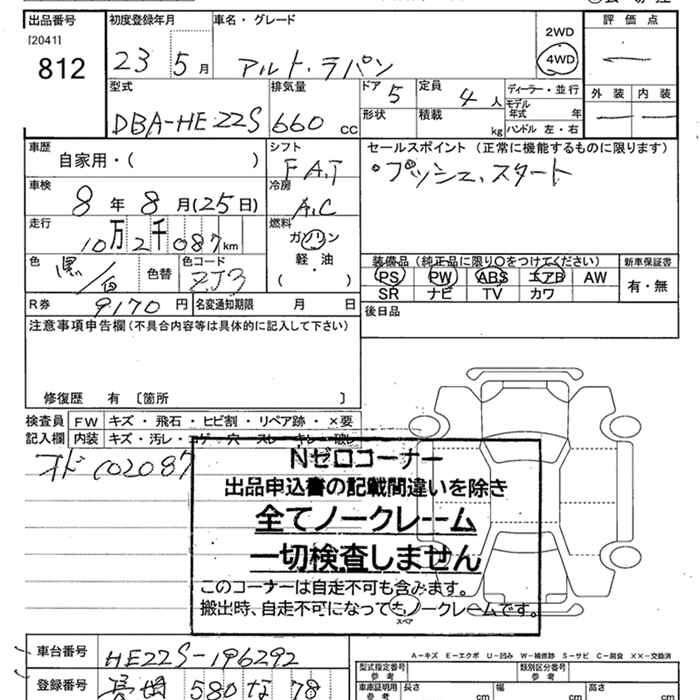 出品番号 初度登録年月 車名・グレード 評価点
[2041] 23 5月 アルト・ラパン 2WD
812 4WD
型式 排気量 ドア 5 定員 4人 ディーラー・並行 外装 内装
DBA-HE22S 660 CC 形状 積載 kg モデル年式 年
ハンドル 左・右
車歴 シフト セールスポイント (正常に機能するものに限ります)
自家用・( ) FAT ・プッシュスタート
車検 冷房
8年 8月(25日) A.C
走行 燃料
10万2千087km ガソリン
軽・油
( )
色 黒/白 色替 色コード ZJ3 装備品 (純正品に限り○をつけてください) 新車保証書
PS PW ABS エアB AW 有・無
SR ナビ TV カワ
R券 9170円 名変通知期限 月 日 後日品
注意事項申告欄 (不具合内容等は具体的に記入して下さい)
修復歴 有 〔箇所 〕
検査員 FW キズ・飛石・ヒビ割・リペア跡・×要
記入欄 内装 キズ・汚レ・コゲ・穴 スレ キレ 破レ
オド 102087
Nゼロコーナー
出品申込書の記載間違いを除き
全てノークレーム
一切検査しません
このコーナーは自走不可も含みます。
搬出時、自走不可になってもノークレームです。
スペア
A-キズ E-エクボ U-凹み W-補修跡 S-サビ C-腐食 XX-交換済
車台番号 HE22S-196292 型式指定番号 参考 類別区分番号 参考
登録番号 580 な 78 車庫証明用 参考 長さ cm 幅 cm 高さ cm